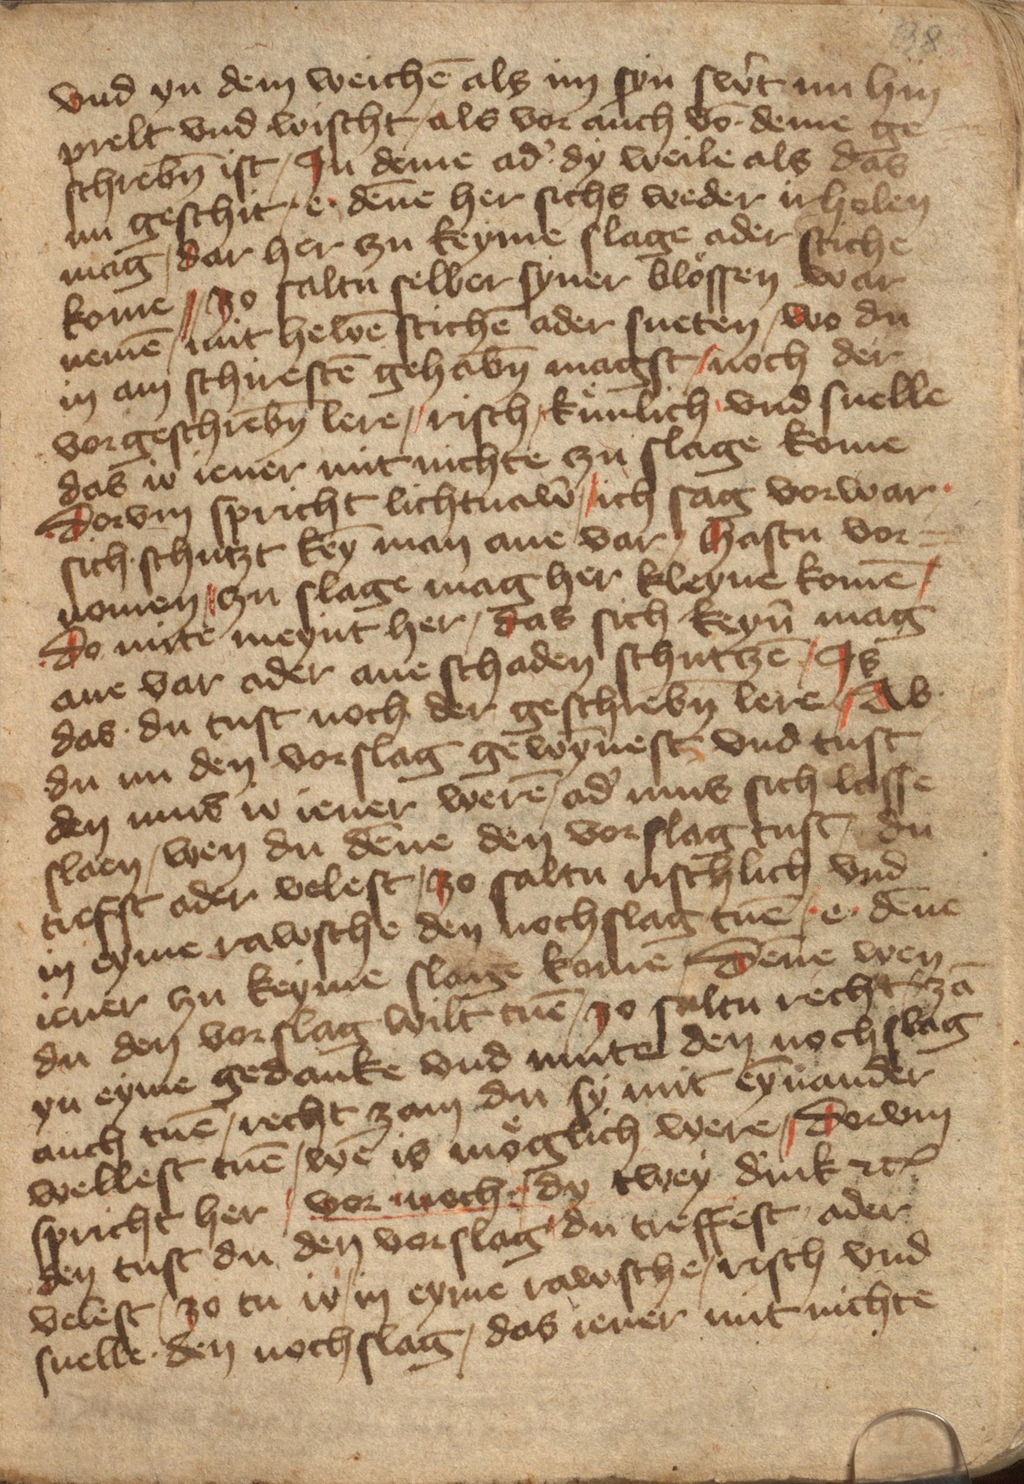 38
vnd yn dem weichē als im syn swˈt nu hin
prelt vnd wischt / als vor auch vō deme ge
schrebn̄ ist / In deme adˈ dy weile als das
nu geschit · e · dēne her sichs weder ir holen
mag / dar her zu keyme slage ader stiche
kome // zo saltu selber syner blössen war
nemē / mit hewē stichē ader sneten / wo du
in am schirestē gehabn̄ magst / noch der
vorgeschrebn̄ lere // risch / kůnlich vnd snelle
das io iener mit nichte zu slage kome
Dorvm spricht lichtnawˈ / ich sag vorwar ·
sich schutzt key̅ man ane var / Hastu vor =
nomen / zu slage mag her kleyne komē /
Do mite meynt her / das sich keyn̄ mag
ane var ader ane schaden schutzē / Is
das du tust noch der geschrebn̄ lere / Ab
du nu den vorslag gewynest vnd tust
den mus io iener werē / adˈ mus sich lasse
slaen / wen du dēne den vorslag tust / du
treffst ader velest / zo saltu rischlich vnd
in eyme rawsche den nochslag tuē / e · dēne
iener zu keyme slage kome / Dēne wen
du den vorslag wilt tuē / zo saltu recht zā
yn eyme gedanke vnd mute den nochslag
auch tuē / recht zam du sy mit eynander
wellest tuē / wē is möglich were / Dorvm
spricht her / vor noch · dy twey dink ꝛcˀ
den tust du den vorslag du treffest ader
velest / zo tu io in eyme rawsche / risch vnd
snelle · den nochslag / das iener mit nichte